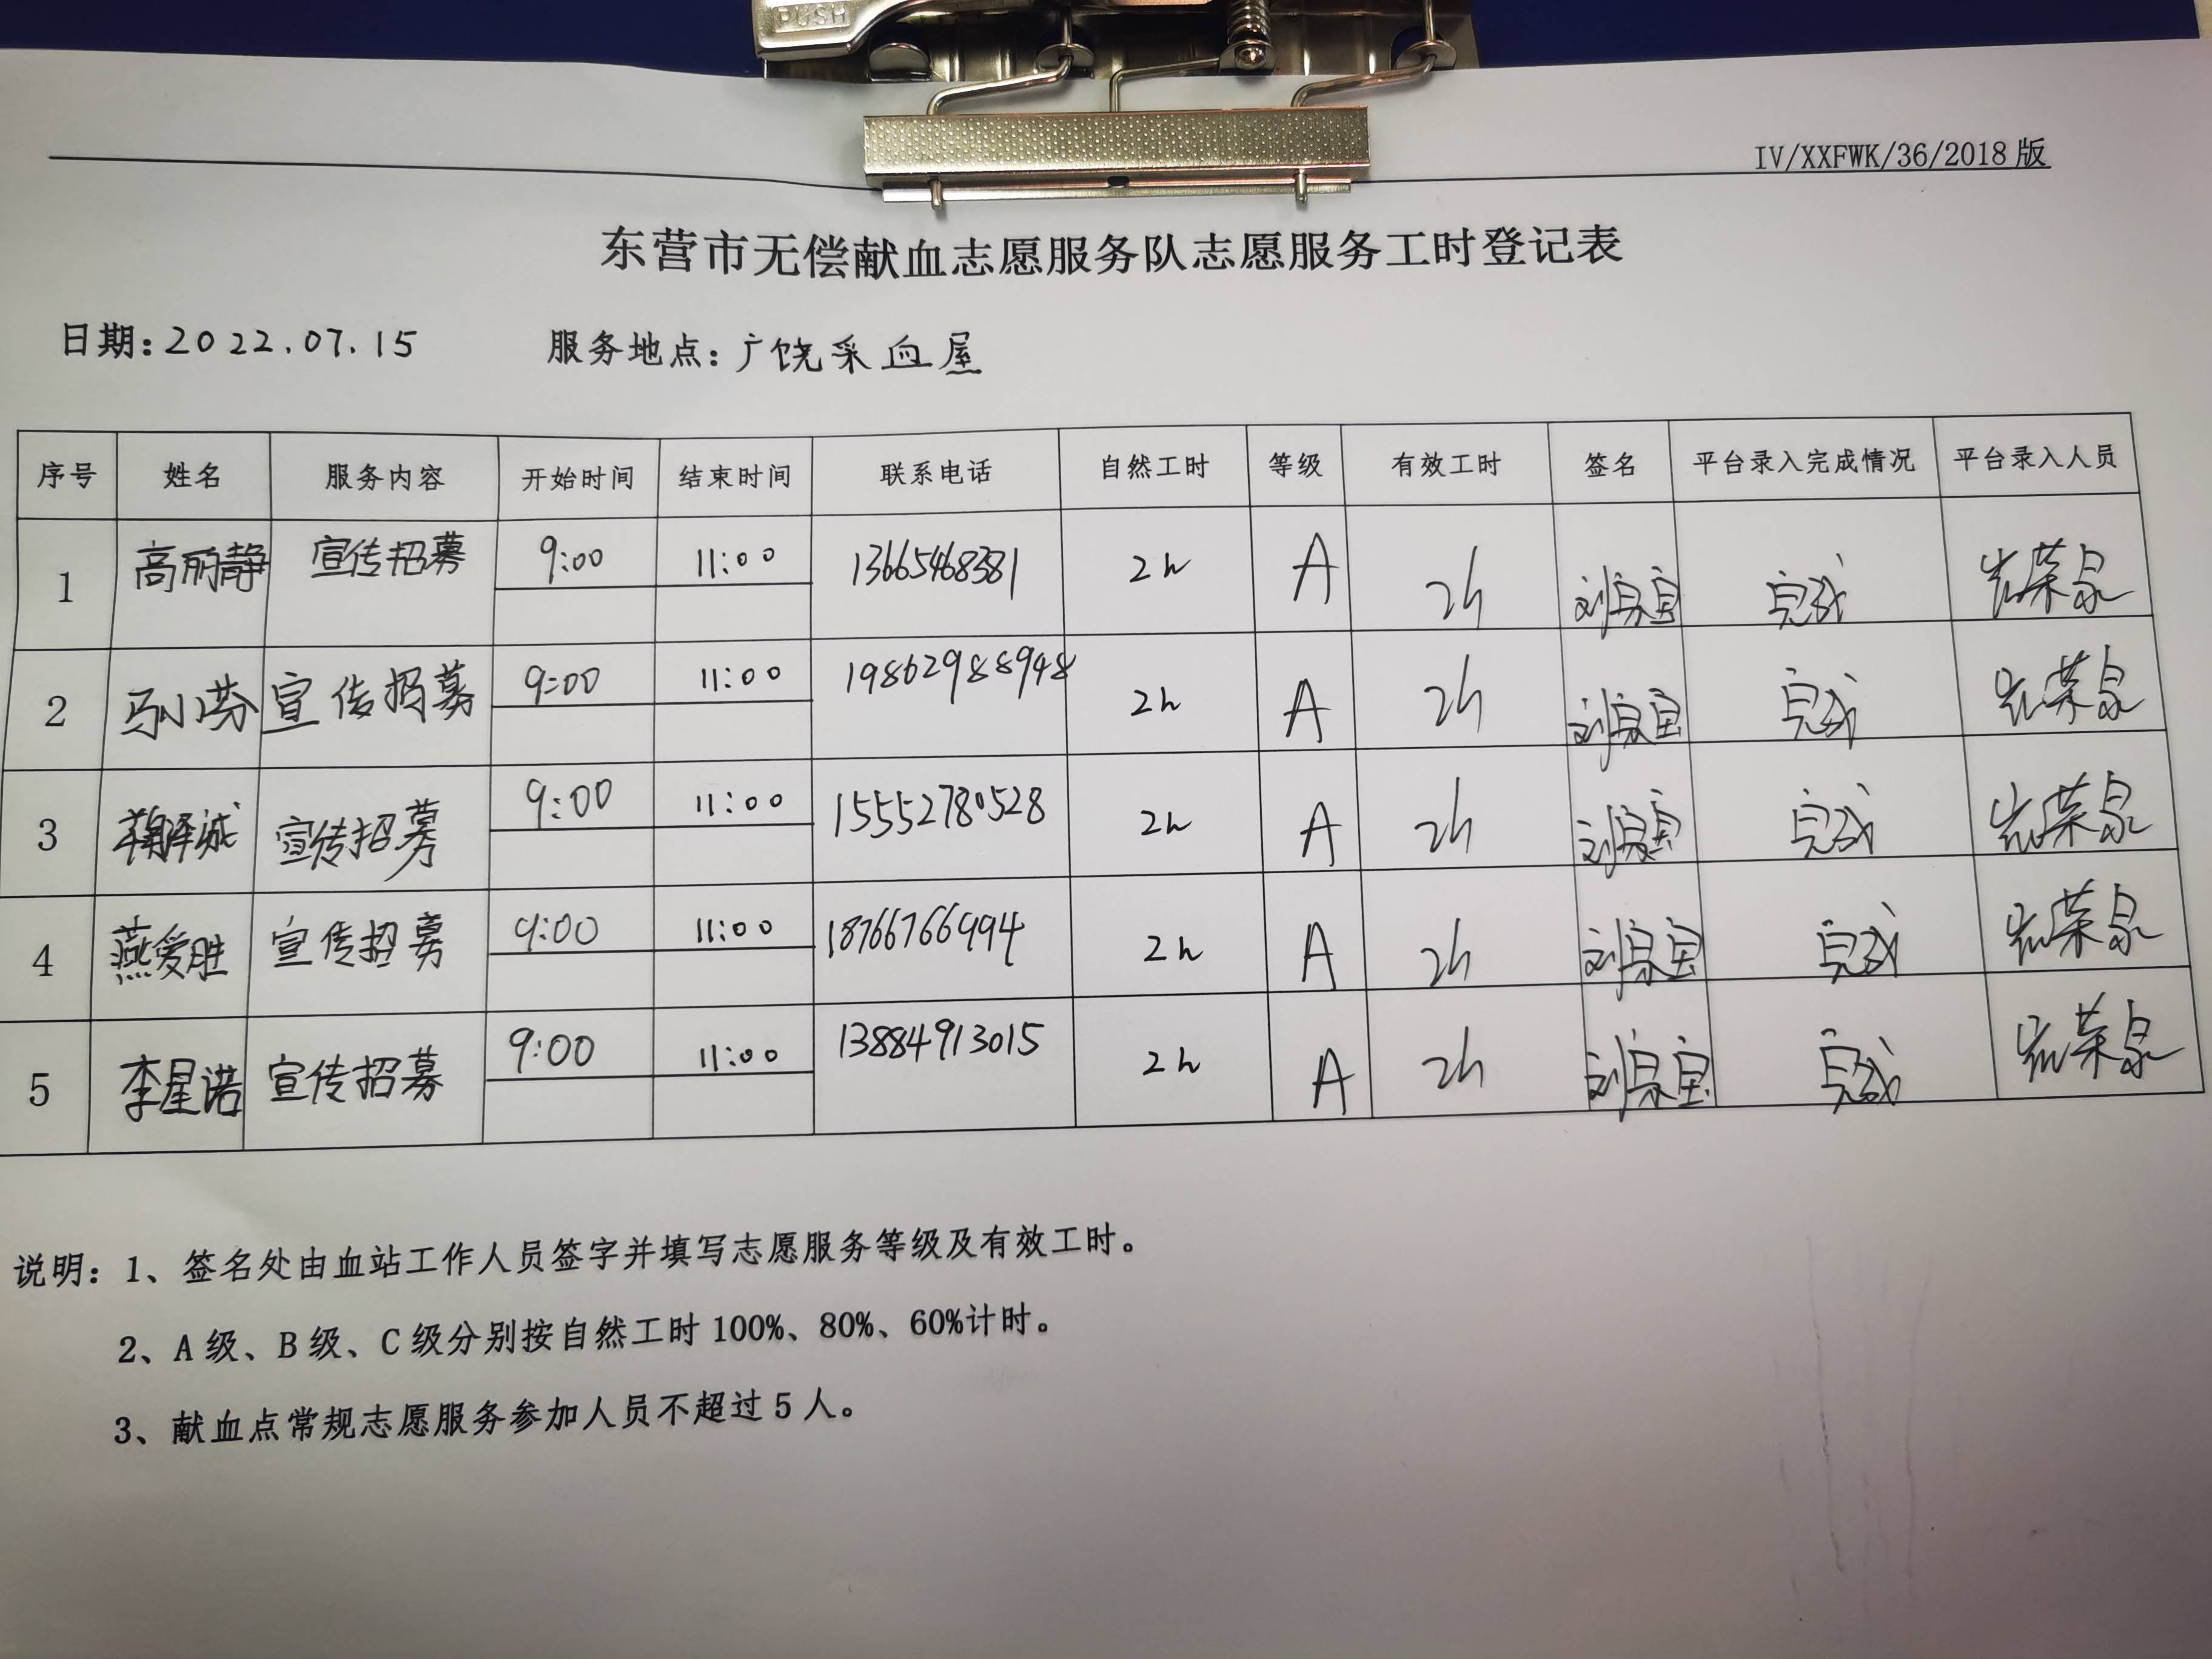 PUSH
IV/XXFWK/36/2018版
东营市无偿献血志愿服务队志愿服务工时登记表
日期:2022.07.15 服务地点:广饶采血屋
序号 姓名 服务内容 开始时间 结束时间 联系电话 自然工时 等级 有效工时 签名 平台录入完成情况 平台录入人员
1 高丽静 宣传招募 9:00 11:00 13665468381 2h A 2h 完成 荣泉
2 马小芬 宣传招募 9:00 11:00 19862988948 2h A 2h 完成 荣泉
3 宣传招募 9:00 11:00 15552780528 2h A 2h 完成 荣泉
4 燕爱胜 宣传招募 9:00 11:00 18766766994 2h A 2h 完成 荣泉
5 李星诺 宣传招募 9:00 11:00 13884913015 2h A 2h 完成 荣泉
说明:1、签名处由血站工作人员签字并填写志愿服务等级及有效工时。
2、A级、B级、C级分别按自然工时100%、80%、60%计时。
3、献血点常规志愿服务参加人员不超过5人。